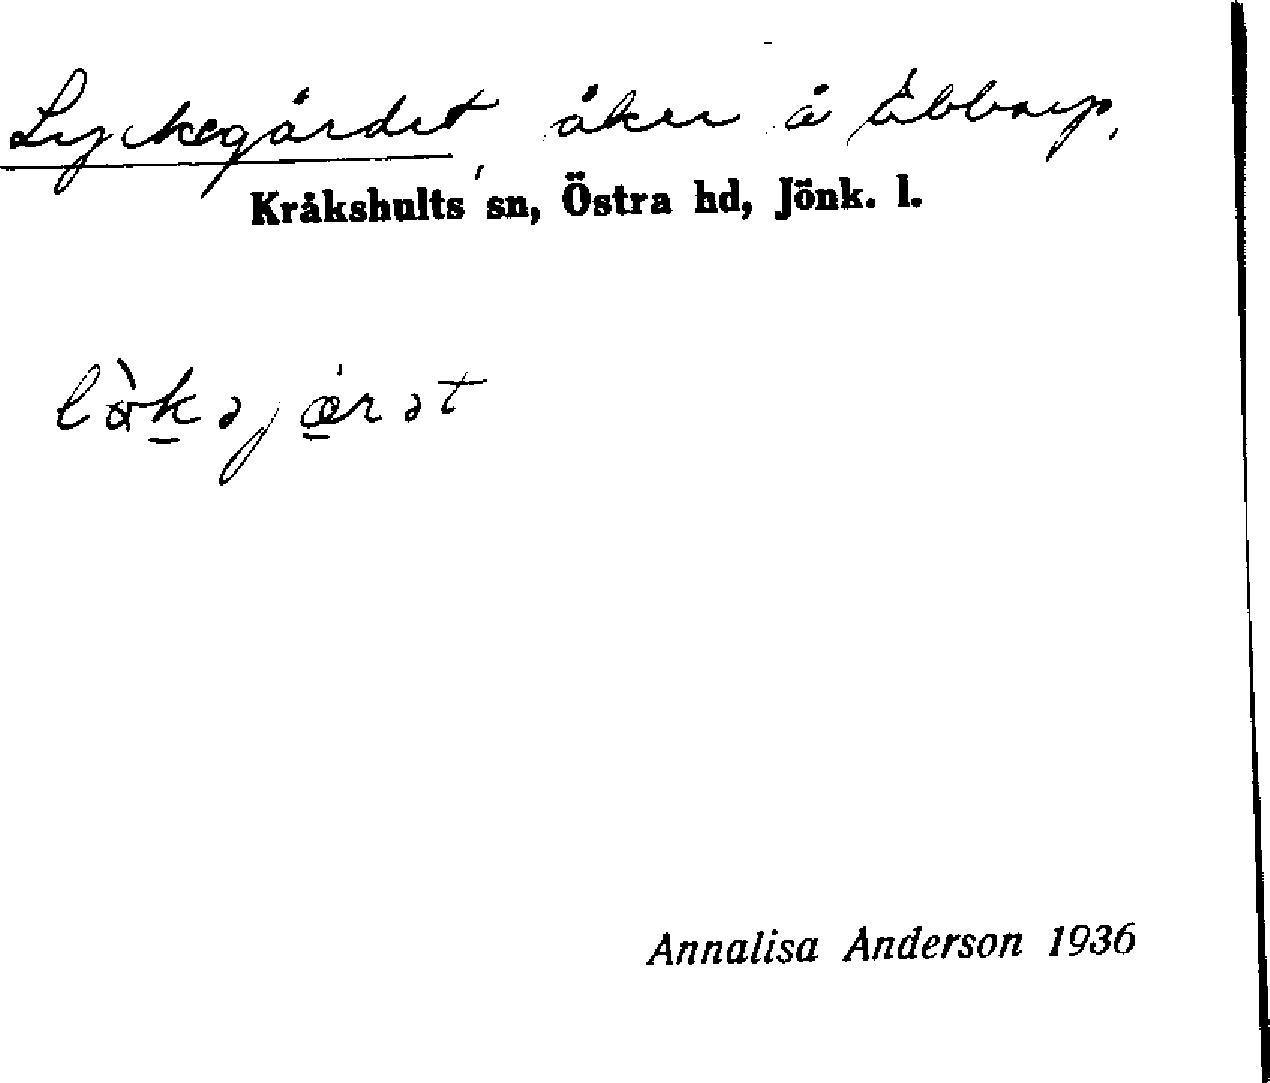 Lyckegärdet åker å Åbbarp.
Kråkshults sn, Östra hd, Jönk. l.
Annalisa Anderson 1936